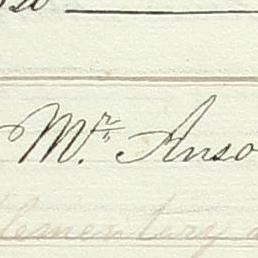 Mr. Anso
lementary